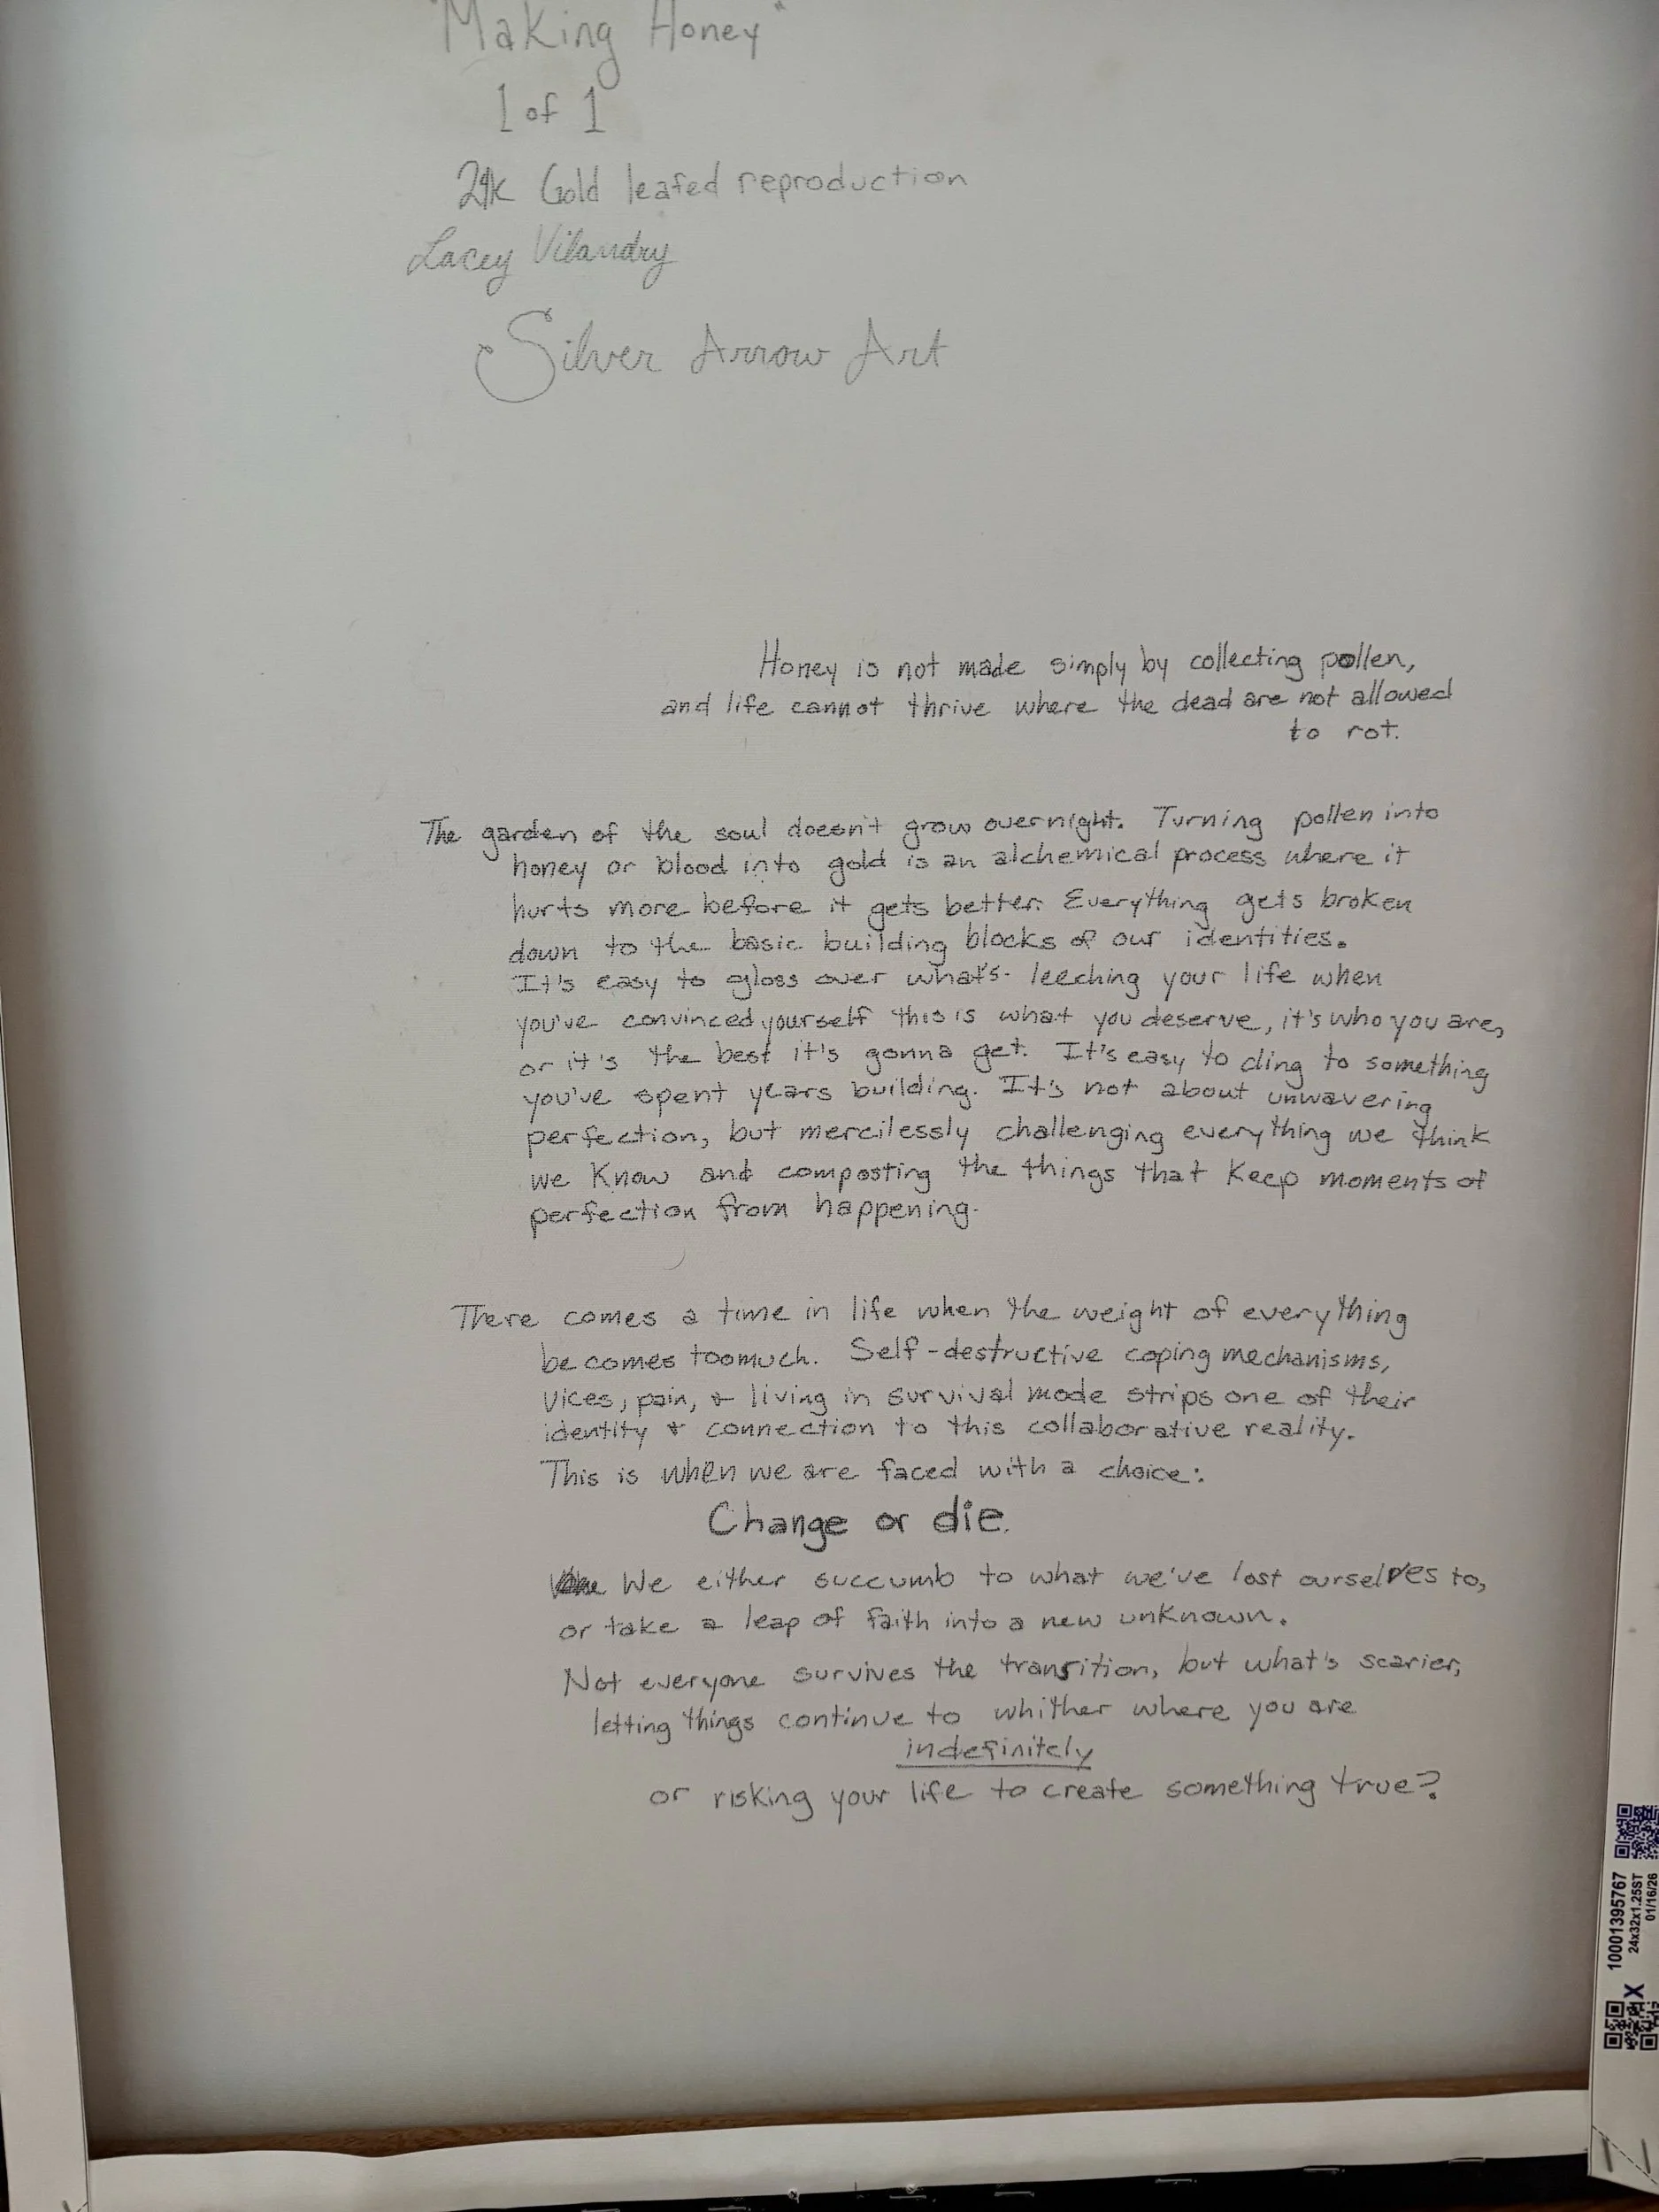 "Making Honey"
1 of 1
24k Gold leafed reproduction
Lacey Vilandry
Silver Arrow Art
Honey is not made simply by collecting pollen,
and life cannot thrive where the dead are not allowed
to rot.
The garden of the soul doesn't grow overnight. Turning pollen into
honey or blood into gold is an alchemical process where it
hurts more before it gets better. Everything gets broken
down to the basic building blocks of our identities.
It's easy to gloss over what's leeching your life when
you've convinced yourself this is what you deserve, it's who you are,
or it's the best it's gonna get. It's easy to cling to something
you've spent years building. It's not about unwavering
perfection, but mercilessly challenging everything we think
we know and composting the things that keep moments of
perfection from happening.
There comes a time in life when the weight of everything
becomes too much. Self-destructive coping mechanisms,
vices, pain, + living in survival mode strips one of their
identity + connection to this collaborative reality.
This is when we are faced with a choice:
Change or die.
We either succumb to what we've lost ourselves to,
or take a leap of faith into a new unknown.
Not everyone survives the transition, but what's scarier,
letting things continue to whither where you are
indefinitely
or risking your life to create something true?
10001395767
24x32x1.25ST
01/16/26
X